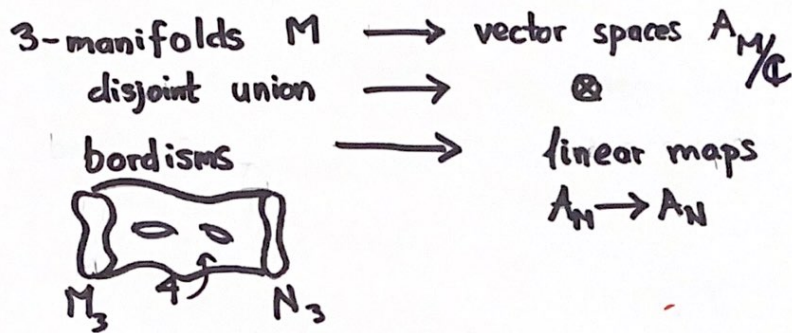 3-manifolds M → vector spaces A_M/ℂ
disjoint union → ⊗
bordisms → linear maps
A_M → A_N
4
M_3 N_3